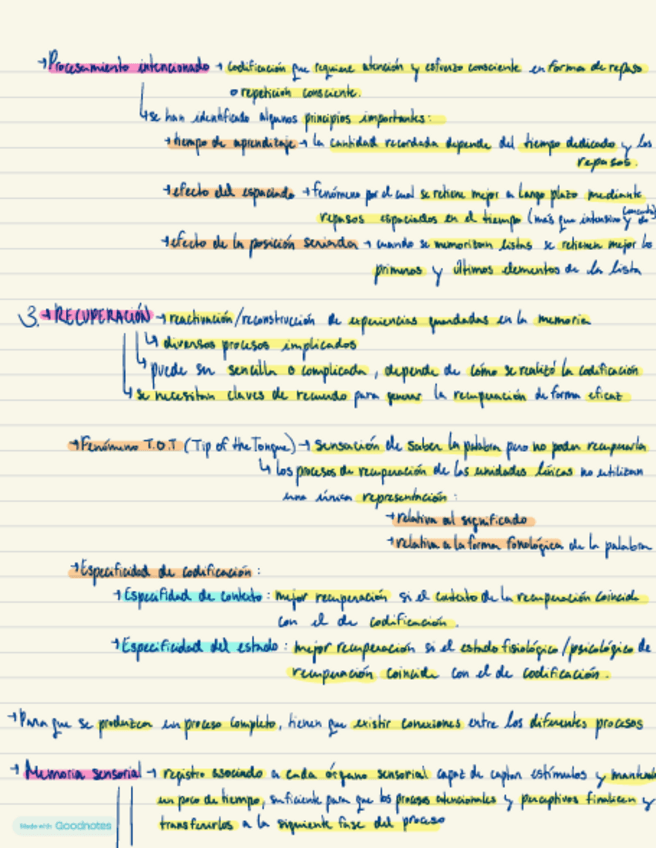 →Procesamiento intencionado → codificación que requiere atención y esfuerzo consciente en forma de repaso
o repetición consciente.
↳se han identificado algunos principios importantes:
→tiempo de aprendizaje → la cantidad recordada depende del tiempo dedicado y los
repasos.
→efecto del espaciado → fenómeno por el cual se retiene mejor a largo plazo mediante
repasos espaciados en el tiempo (más que intensivo y
→efecto de la posición seriada → cuando se memorizan listas se retienen mejor lo
primeros y últimos elementos de la lista
3.→RECUPERACIÓN → reactivación/reconstrucción de experiencias guardadas en la memoria
↳ diversos procesos implicados
↳ puede ser sencilla o complicada, depende de cómo se realizó la codificación
↳ se necesitan claves de recuerdo para generar la recuperación de forma eficaz
→Fenómeno T.O.T (Tip of the Tongue) → sensación de saber la palabra pero no poder recuperarla
↳ los procesos de recuperación de las unidades léxicas no utilizan
una única representación:
→relativa al significado
→relativa a la forma fonológica de la palabra
→Especificidad de codificación:
→Especifidad de contexto: mejor recuperación si el contexto de la recuperación coincide
con el de codificación.
→Especificidad del estado: mejor recuperación si el estado fisiológico/psicológico de
recuperación coincide con el de codificación.
→Para que se produzcan un proceso completo, tienen que existir conexiones entre los diferentes procesos
→ Memoria sensorial → registro asociado a cada órgano sensorial capaz de captar estímulos y
un poco de tiempo, suficiente para que los procesos atencionales y perceptivos finalicen y
transferirlos a la siguiente fase del proceso
Made with Goodnotes